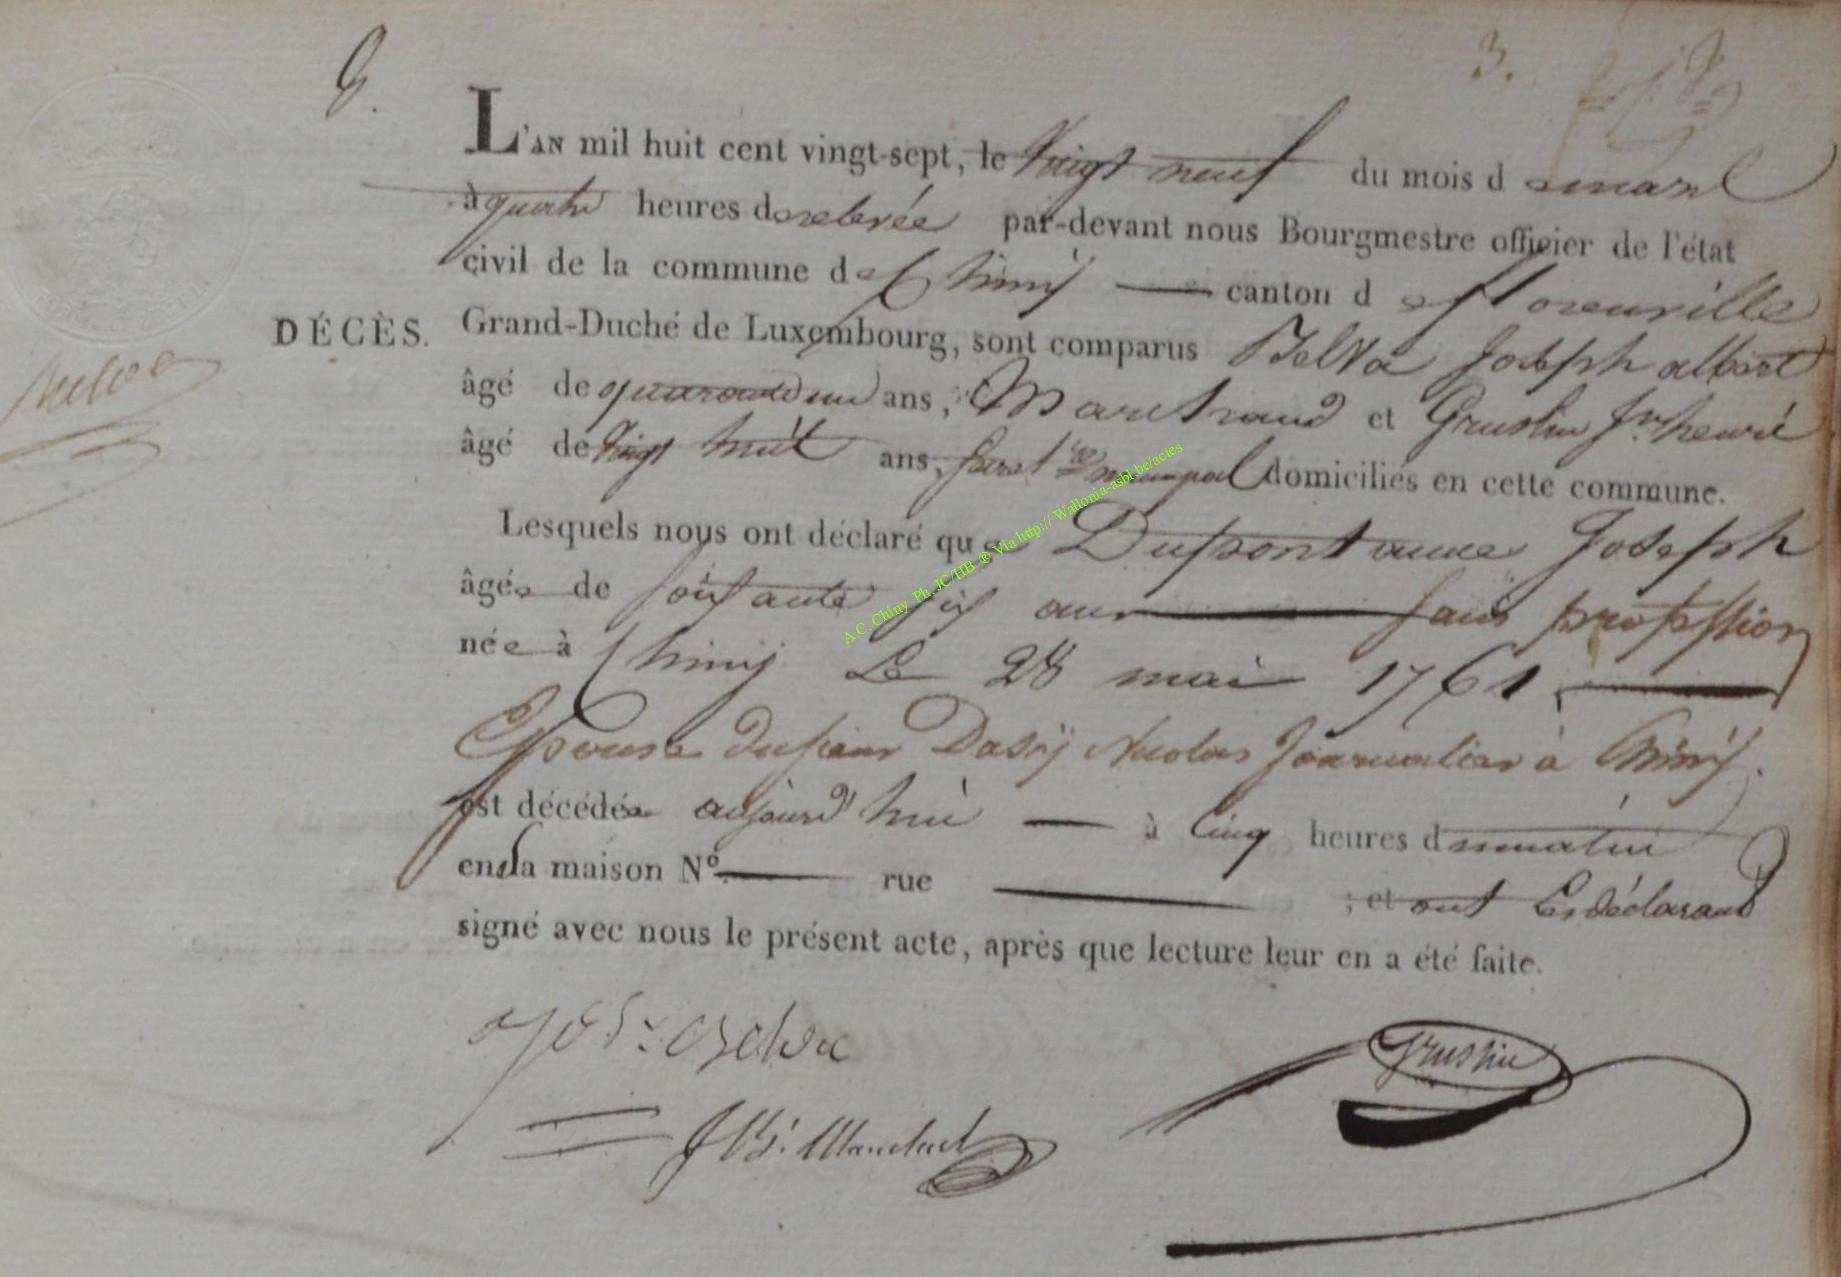 3.
L'AN mil huit cent vingt-sept, le vingt neuf du mois de mars
à quatre heures de relevée par-devant nous Bourgmestre officier de l'état
civil de la commune de Chinÿ canton de florenville
DÉCÈS. Grand-Duché de Luxembourg, sont comparus Belva Joseph albert
âgé de quarante un ans, Marchand et Gruslin Jn henri
âgé de vingt huit ans, domiciliés en cette commune.
Lesquels nous ont déclaré que Dupont anne Joseph
âgée de soixante six ans sans profession
née à Chinÿ Le 28 mai 1761
Epouse du sieur Dasÿ Nicolas Journalier à Chinÿ.
est décédée aujourd'hui à Cinq heures du matin
en sa maison N° rue ; et ont Les déclarans
signé avec nous le présent acte, après que lecture leur en a été faite.
Belva
Gruslin
A.C. Chiny Ph. JC/HB ® Via http:// Wallonia-asbl.be/actes